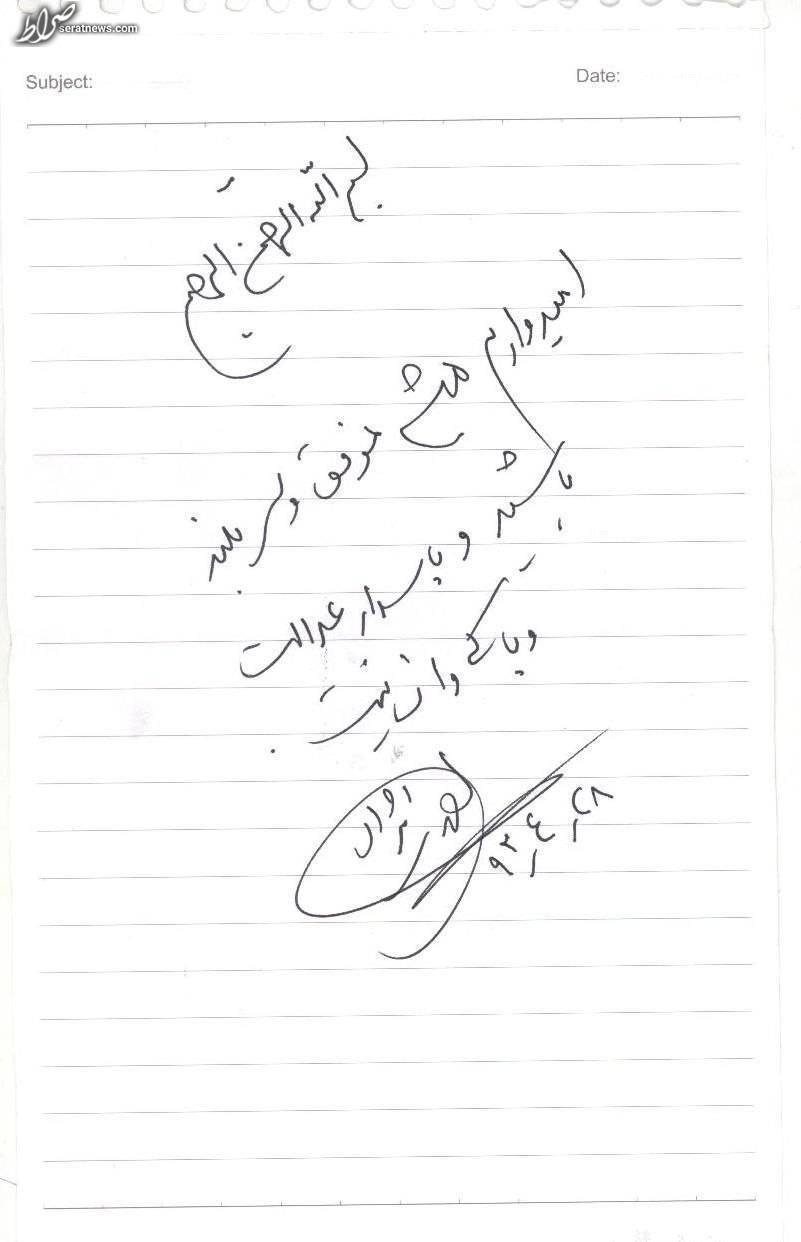 صراط
seratnews.com
Subject:
Date:
بسم الله الرحمن الرحیم
امیدوارم همیشه موفق و سربلند
باشید و پاسدار عدالت
و پاکی و انسانیت.
۹۳/۴/۲۸